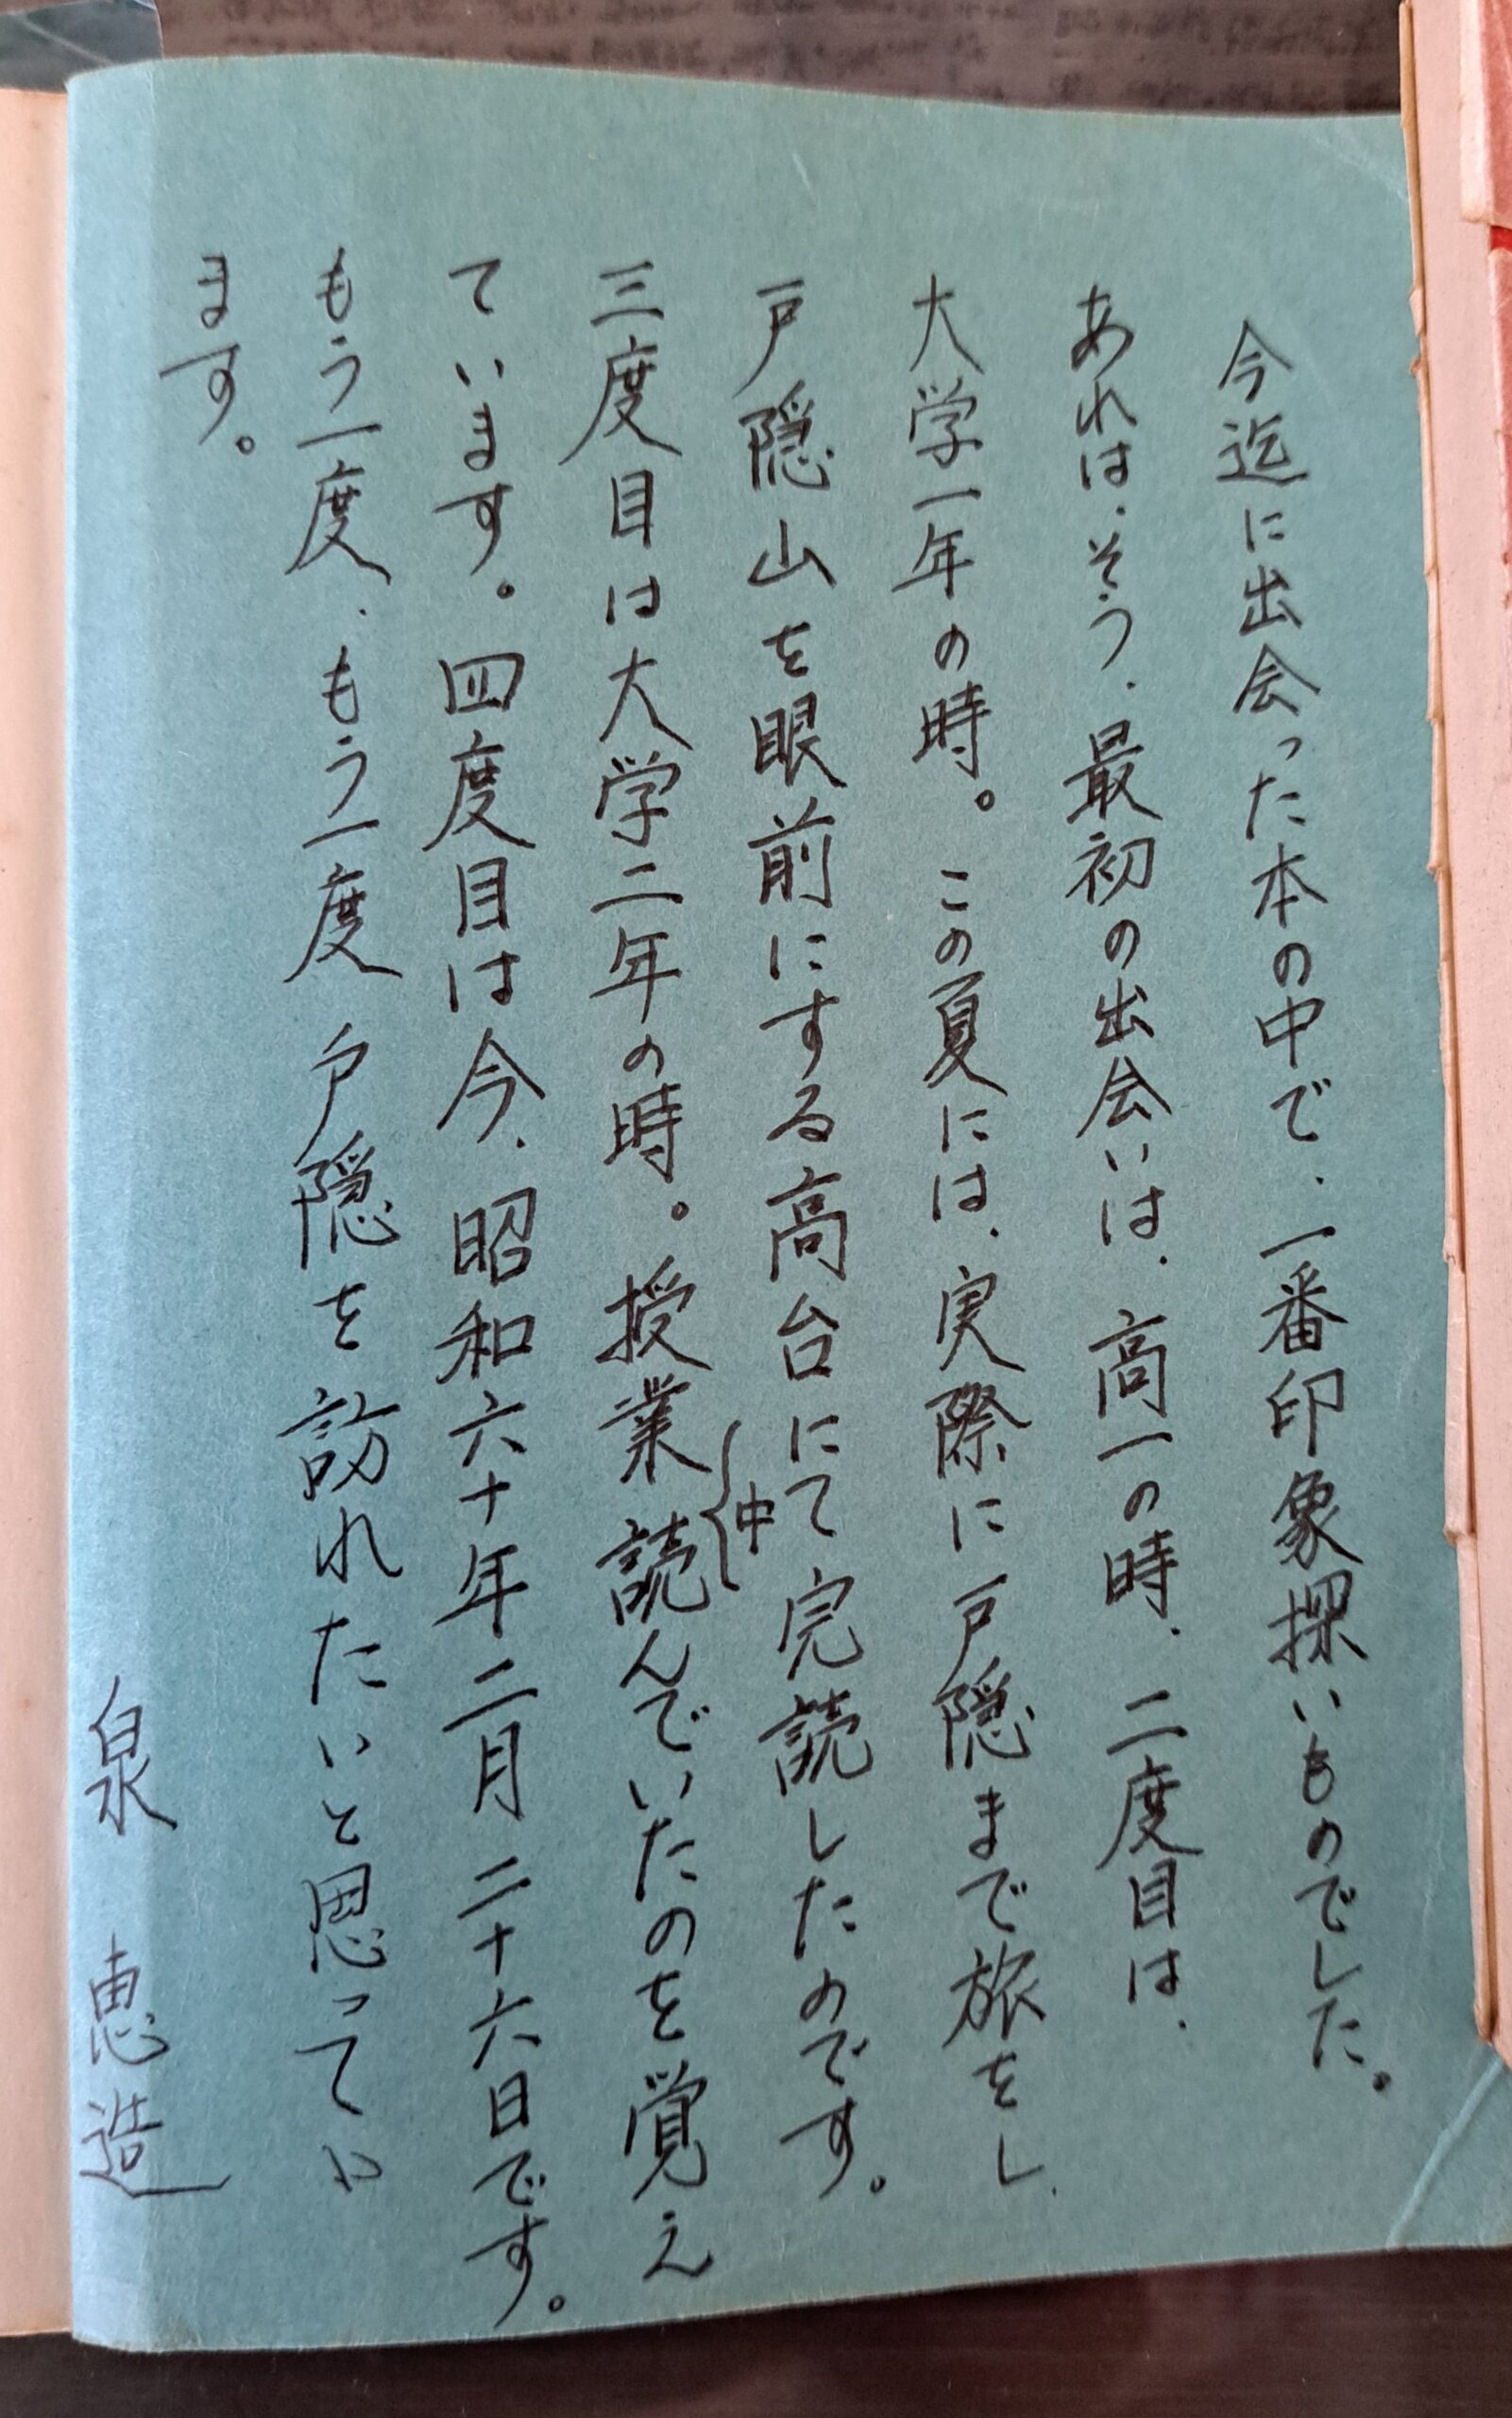 今迄に出会った本の中で、一番印象探いものでした。
あれは、そう、最初の出会いは、高一の時、二度目は、
大学一年の時。この夏には、実際に戸隠まで旅をし、
戸隠山を眼前にする高台にて完読したのです。
三度目は大学二年の時。授業{中}読んでいたのを覚え
ています。四度目は今、昭和六十年二月二十六日です。
もう一度、もう一度戸隠を訪れたいと思ってい
ます。
泉 恵造